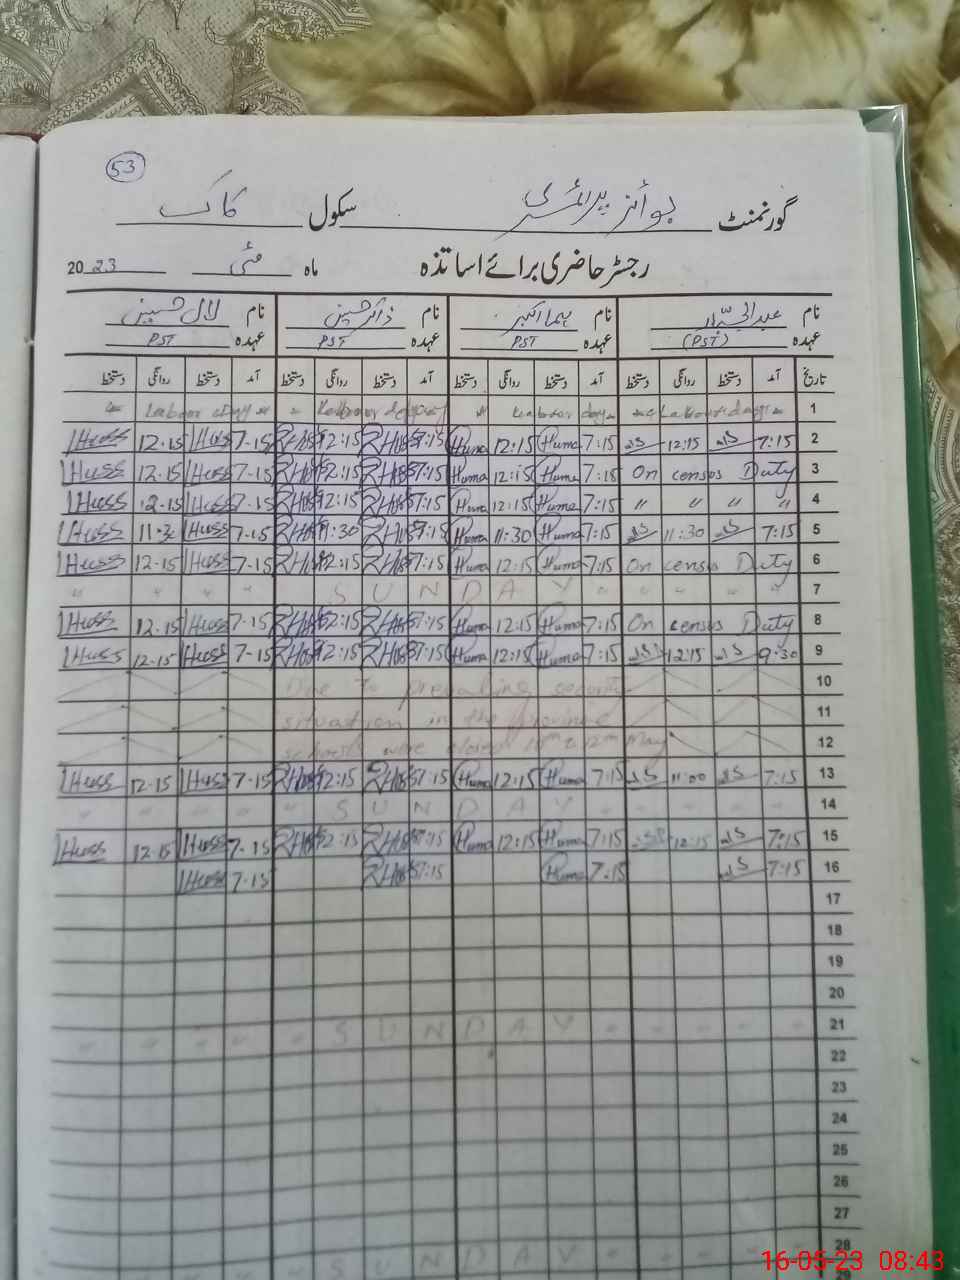 53
گورنمنٹ بوائز پرائمری سکول کاگ
رجسٹر حاضری برائے اساتذہ ماہ مئی 2023
نام عبدالجبار نام ہما اکبر نام ذاکر حسین نام لال حسین
عہدہ (PST) عہدہ PST عہدہ PST عہدہ PST
تاریخ آمد دستخط روانگی دستخط آمد دستخط روانگی دستخط آمد دستخط روانگی دستخط آمد دستخط روانگی دستخط
Labour day Labour day Labour day Labour day 1
Huss 12-15 Huss 7-15 12:15 7:15 Huma 12:15 Huma 7:15 12:15 7:15 2
Huss 12-15 Huss 7-15 12:15 7:15 Huma 12:15 Huma 7:15 On census Duty 3
Huss 12-15 Huss 7-15 12:15 7:15 Huma 12:15 Huma 7:15 " " " " 4
Huss 11-30 Huss 7-15 11:30 7:15 Huma 11:30 Huma 7:15 11:30 7:15 5
Huss 12-15 Huss 7-15 12:15 7:15 Huma 12:15 Huma 7:15 On census Duty 6
" " " " S U N D A Y " " " " " 7
Huss 12-15 Huss 7-15 12:15 7:15 Huma 12:15 Huma 7:15 On census Duty 8
Huss 12-15 Huss 7-15 12:15 7:15 Huma 12:15 Huma 7:15 12:15 9:30 9
Due to prevailing security 10
situation in the province 11
schools were closed 10th to 12th May 12
Huss 12-15 Huss 7-15 12:15 7:15 Huma 12:15 Huma 7:15 11:00 7:15 13
" " " " " S U N D A Y " " " " " 14
Huss 12-15 Huss 7-15 12:15 7:15 Huma 12:15 Huma 7:15 12:15 7:15 15
Huss 7-15 7:15 Huma 7:15 7:15 16
17
18
19
20
" " " " " S U N D A Y " " " " " 21
22
23
24
25
26
27
S U N D A Y 28
16-05-23 08:43